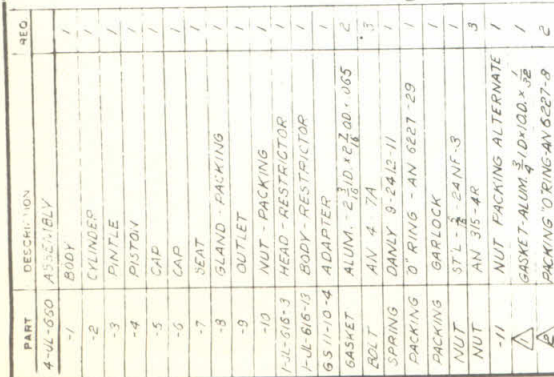 PART DESCRIPTION REQ
4-UL-650 ASSEMBLY
-1 BODY 1
-2 CYLINDER 1
-3 PINTLE 1
-4 PISTON 1
-5 CAP 1
-6 CAP 1
-7 SEAT 1
-8 GLAND - PACKING 1
-9 OUTLET 1
-10 NUT - PACKING 1
1-UL-616-3 HEAD - RESTRICTOR 1
1-UL-616-13 BODY - RESTRICTOR 1
GS 11-10-4 ADAPTER 1
GASKET ALUM. - 2 3/16 ID. x 2 7/16 OD. x .065 2
BOLT AN 4 - 7A 3
SPRING DANLY 9-2412-11 1
PACKING "O" RING - AN 6227-29 1
PACKING GARLOCK 1
NUT ST'L - 24 NF-3 1
NUT AN 315-4R 3
-11 NUT PACKING ALTERNATE 1
1 GASKET-ALUM. 3/4 ID x 1 O.D. x 1/32 1
2 PACKING 'O' RING-AN 6227-8 2